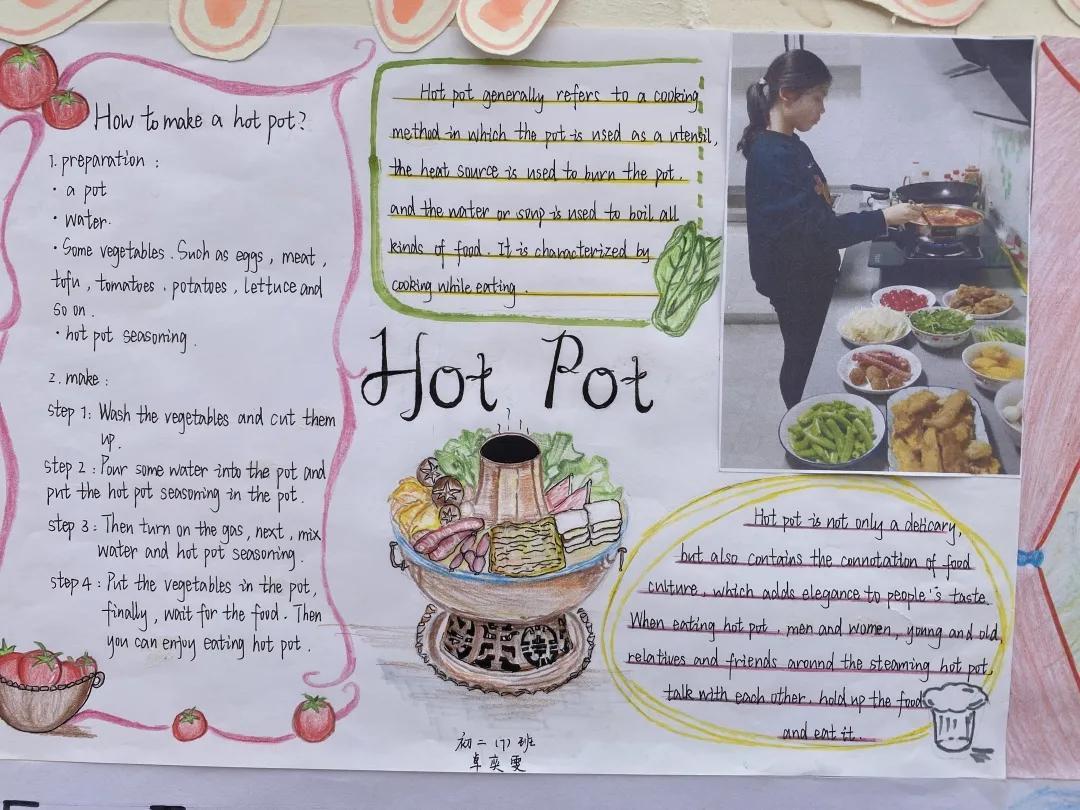 How to make a hot pot?
1. preparation :
· a pot
· water.
· Some vegetables. Such as eggs, meat,
tofu, tomatoes. potatoes, lettuce and
so on.
· hot pot seasoning.
2. make :
step 1: Wash the vegetables and cut them
up.
step 2: Pour some water into the pot and
put the hot pot seasoning in the pot.
step 3: Then turn on the gas, next, mix
water and hot pot seasoning.
step 4: Put the vegetables in the pot,
finally, wait for the food. Then
you can enjoy eating hot pot.
Hot pot generally refers to a cooking
method in which the pot is used as a utensil,
the heat source is used to burn the pot.
and the water or soup is used to boil all
kinds of food. It is characterized by
cooking while eating.
Hot Pot
Hot pot is not only a delicary,
but also contains the connotation of food
culture, which adds elegance to people's taste.
When eating hot pot, men and women, young and old,
relatives and friends around the steaming hot pot,
talk with each other, hold up the food
and eat it.
初二(7)班
卓奕雯